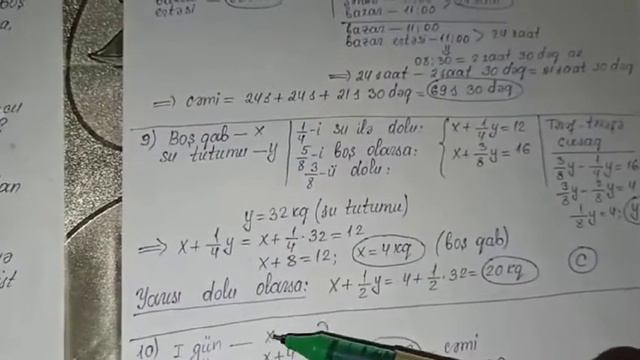 ertəsi
bazar – 11:00
bazar – 11:00
bazar ertəsi – 11:00 > 24 saat
08:30 = 2 saat 30 dəq az
=> 24 saat – 2 saat 30 dəq = 21 saat 30 dəq
=> cəmi = 24s + 24s + 21s 30 dəq = 69s 30 dəq
9) Boş qab – x
su tutumu – y
1/4-i su ilə dolu:
5/8-i boş olarsa:
3/8-ü dolu:
x + 1/4y = 12
x + 3/8y = 16
Tərəf-tərəfə
çıxsaq
3/8y – 1/4y = 16
3/8y – 2/8y = 4
1/8y = 4;
y = 32 kq (su tutumu)
=> x + 1/4y = x + 1/4 · 32 = 12
x + 8 = 12; x = 4 kq (boş qab)
Yarısı dolu olarsa: x + 1/2y = 4 + 1/2 · 32 = 20 kq
C
10) I gün — x
cəmi
x + 4